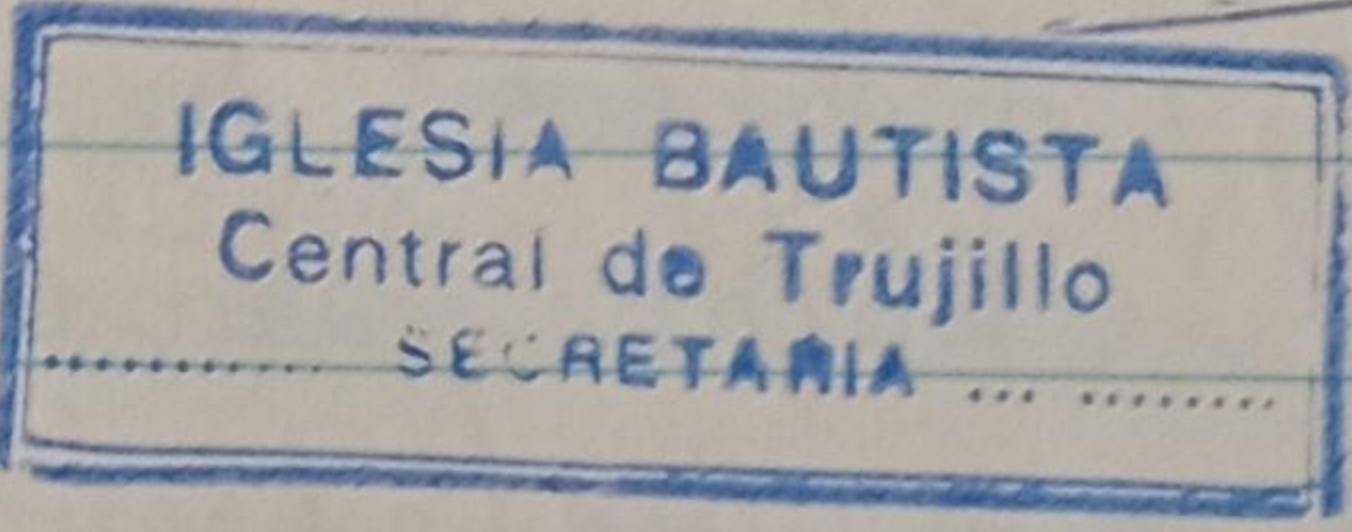 IGLESIA BAUTISTA
Central de Trujillo
............ SECRETARIA ... ........